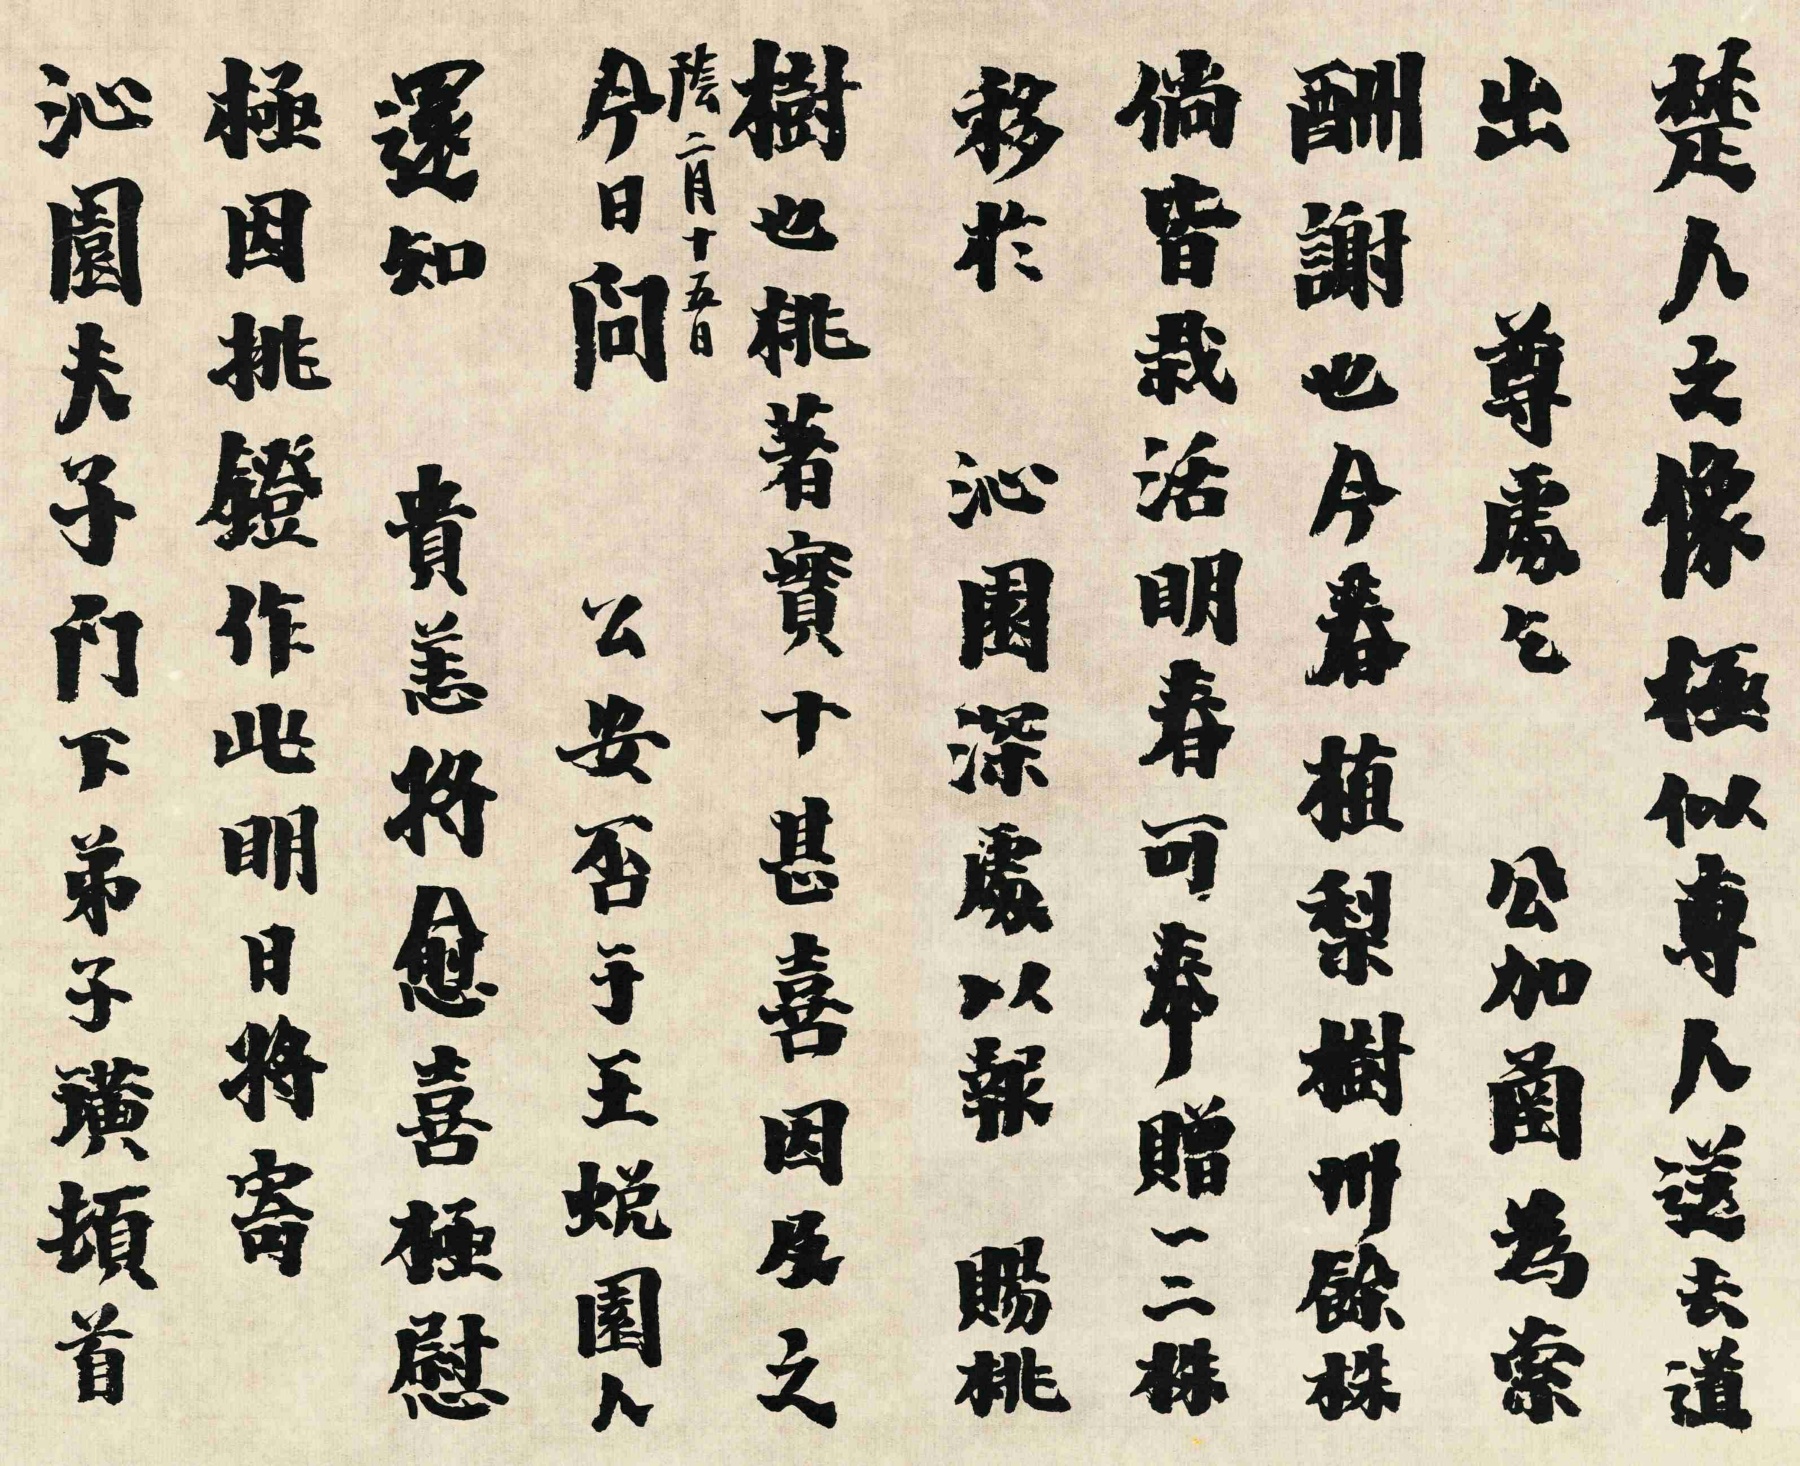 楚人之像極似尊人送去道
出 尊處乞 公加函為索
酬謝也今春植梨樹卅餘株
倘皆栽活明春可奉贈一二株
移於 沁園深處以報 賜桃
樹也桃著實十甚喜因及之
陰二月十五日
今日問 公安否于王蜕園人
還知 貴恙將愈喜極慰
極因挑鐙作此明日將寄
沁園夫子門下弟子璜頓首